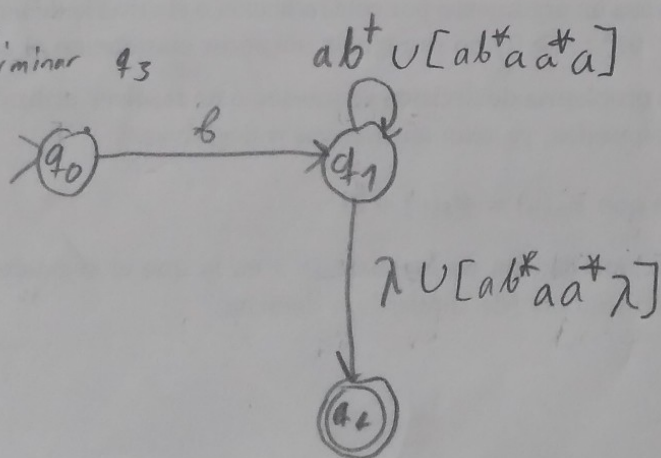 iminar q₃
ab⁺ ∪ [ab*aa*a]
b
q₀
q₁
λ ∪ [ab*aa*λ]